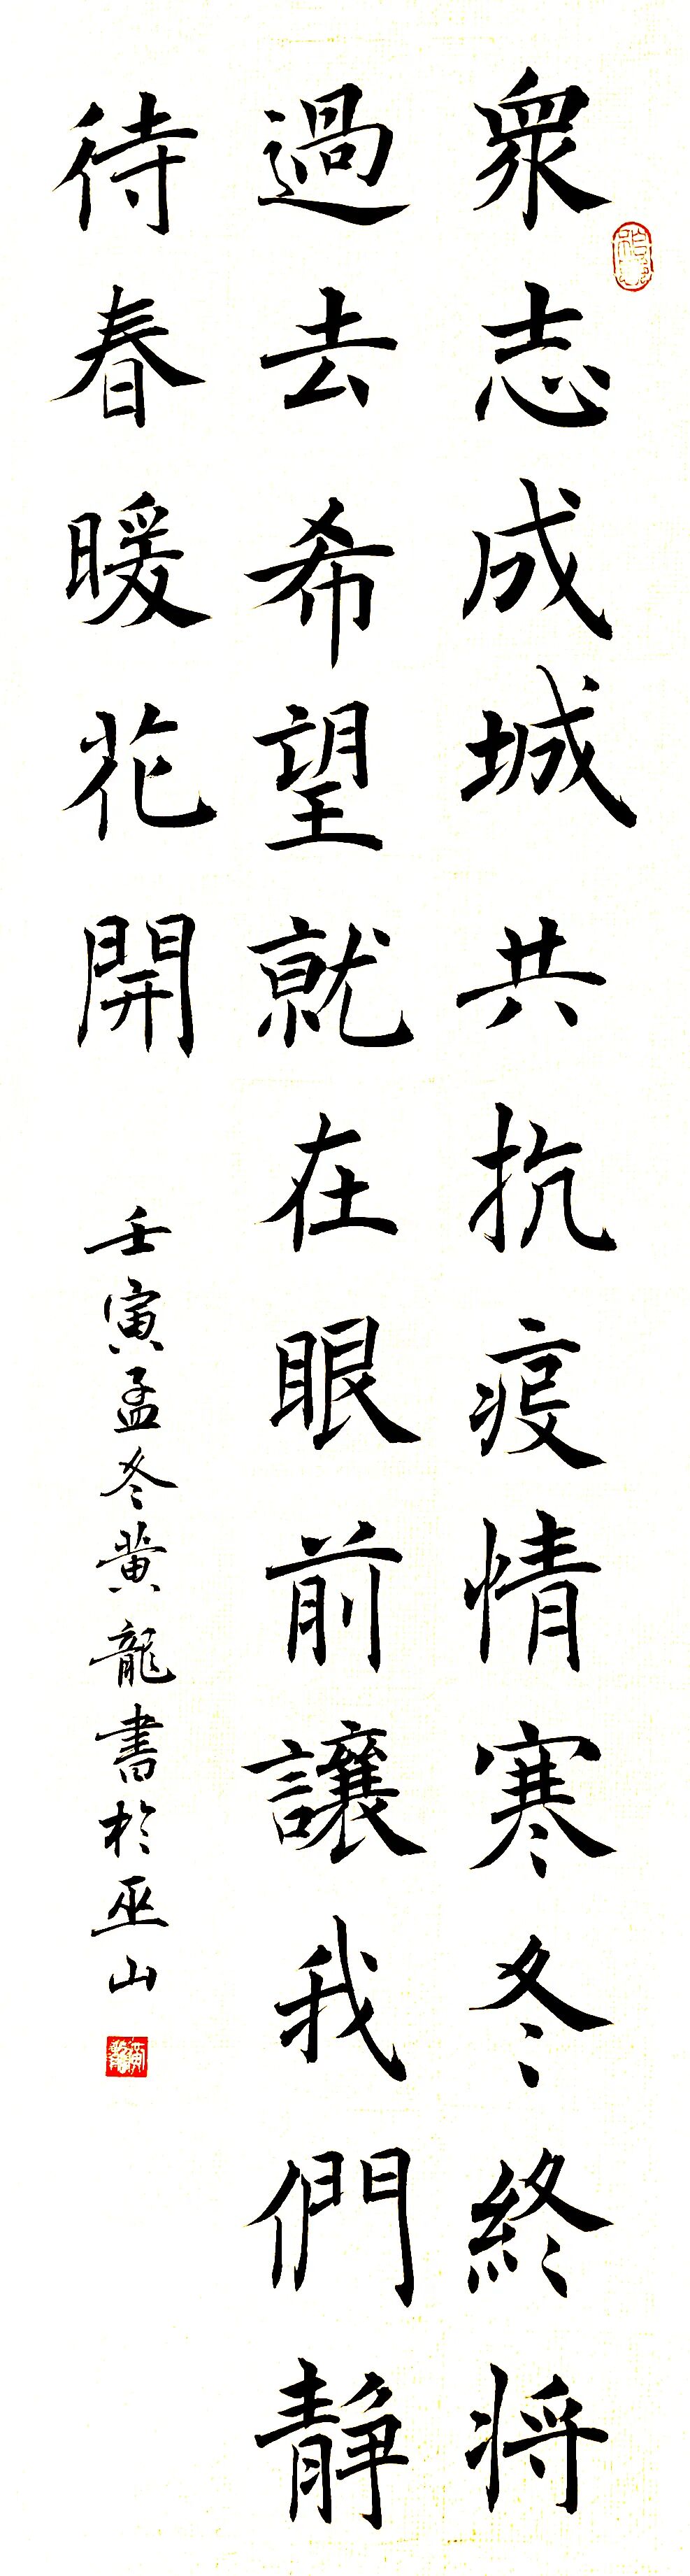 眾志成城共抗疫情寒冬終將
過去希望就在眼前讓我們靜
待春暖花開
壬寅孟冬黄龍書於巫山